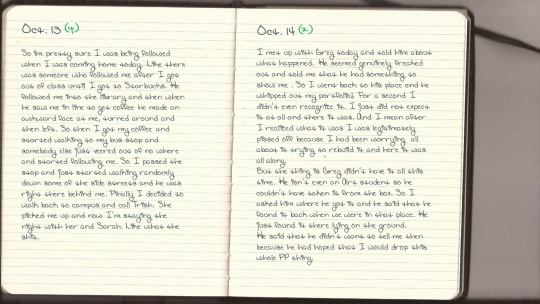 Oct. 13 (4)
So Im pretty sure I was being followed
when I was coming home today. Like there
was someone who followed me after I got
out of class until I got to Starbucks. He
followed me into the library and then when
he saw me in line to get coffee he made an
awkward face at me, turned around and
then left. So then I got my coffee and
started walking to my bus stop and
somebody else just veered out of no where
and started following me. So I passed the
stop and just started walking randomly
down some of the side streets and he was
right there behind me. Finally I decided to
walk back to campus and call Trish. She
picked me up and now I'm staying the
night with her and Sarah. Like what the
shit.
Oct. 14 (2)
I met up with Greg today and told him about
what happened. He seemed genuinely freaked
out and told me that he had something to
show me. So I went back to his place and he
whipped out my portfolio! For a second I
didn't even recognize it. I just did not expect
it at all and there it was. And I mean after
I realized what it was I was legitimately
pissed off because I had been worrying all
about to trying to rebuild it and here it was
all along.
But the thing is Greg didn't have it all this
time. He isn't even an Art student so he
couldn't have taken it from the box. So I
asked him where he got it and he said that he
found it back when we were in that place. He
just found it there lying on the ground.
He said that he didn't want to tell me then
because he had hoped that I would drop this
whole PP thing.